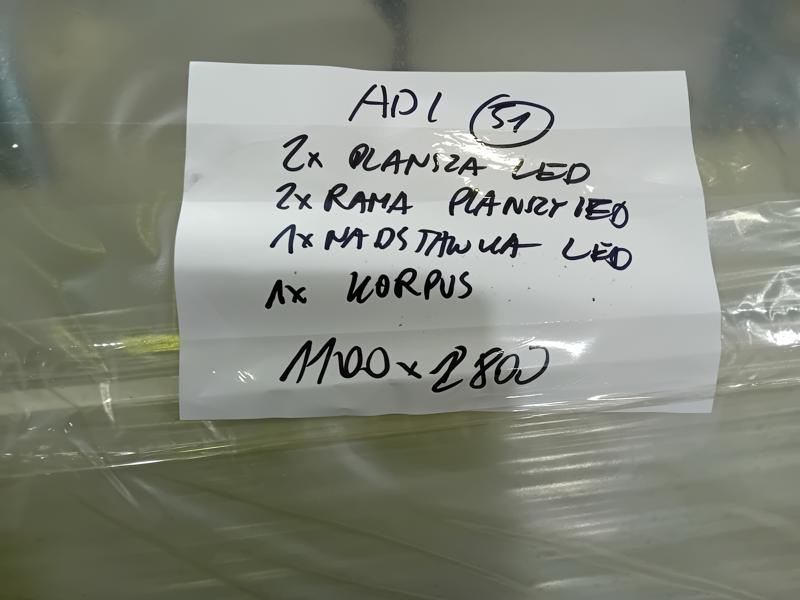 ADI 51
2x PLANSZA LED
2x RAMA PLANSZY LED
1x NADSTAWKA LED
1x KORPUS
1100x2800